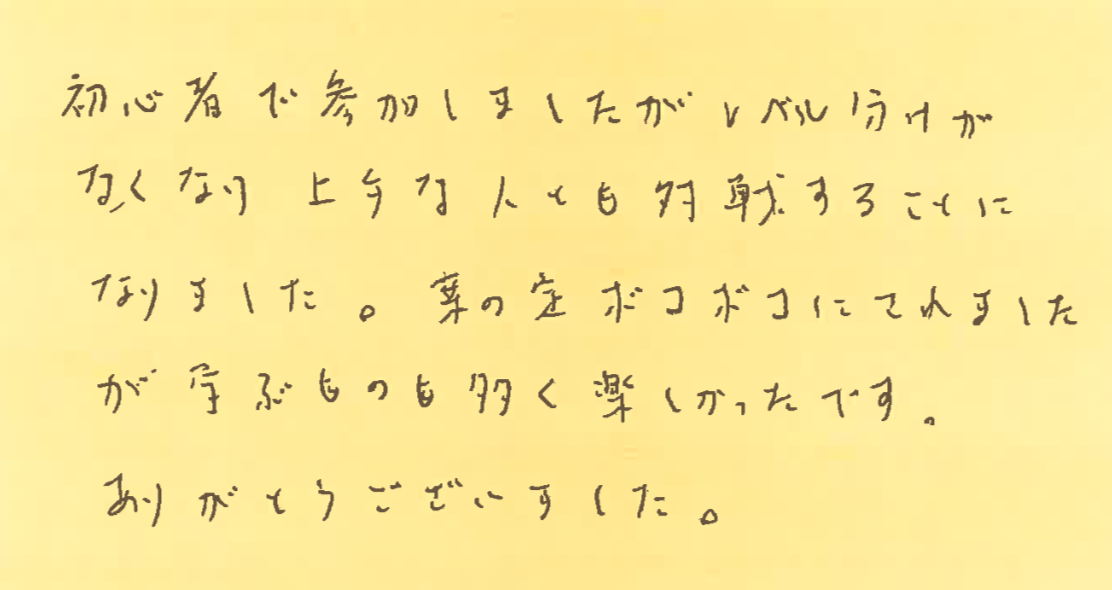 初心者で参加しましたがレベル分けが
なくなり上手な人とも対戦することに
なりました。案の定ボコボコにされました
が学ぶものも多く楽しかったです。
ありがとうございました。